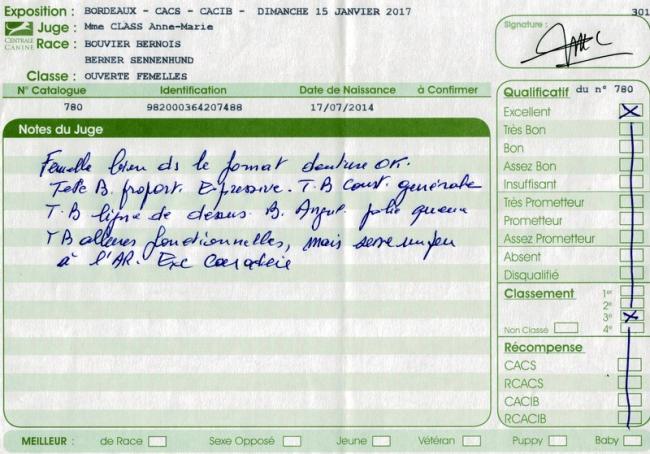 Exposition : BORDEAUX - CACS - CACIB - DIMANCHE 15 JANVIER 2017
301
CENTRALE CANINE
Juge : Mme CLASS Anne-Marie
Race : BOUVIER BERNOIS
BERNER SENNENHUND
Classe : OUVERTE FEMELLES
Signature :
N° Catalogue Identification Date de Naissance à Confirmer
780 982000364207488 17/07/2014
Notes du Juge
Femelle bien ds le format denture OK.
Tete B. proport. Expressive. T.B Const. générale
T.B ligne de dessus. B. Angul. jolie queue
TB allures fonctionnelles, mais serre un peu
à l'AR. Exc caractère
Qualificatif du n° 780
Excellent X
Très Bon
Bon
Assez Bon
Insuffisant
Très Prometteur
Prometteur
Assez Prometteur
Absent
Disqualifié
Classement 1er
2e
3e X
Non Classé 4e
Récompense
CACS
RCACS
CACIB
RCACIB
MEILLEUR : de Race Sexe Opposé Jeune Vétéran Puppy Baby